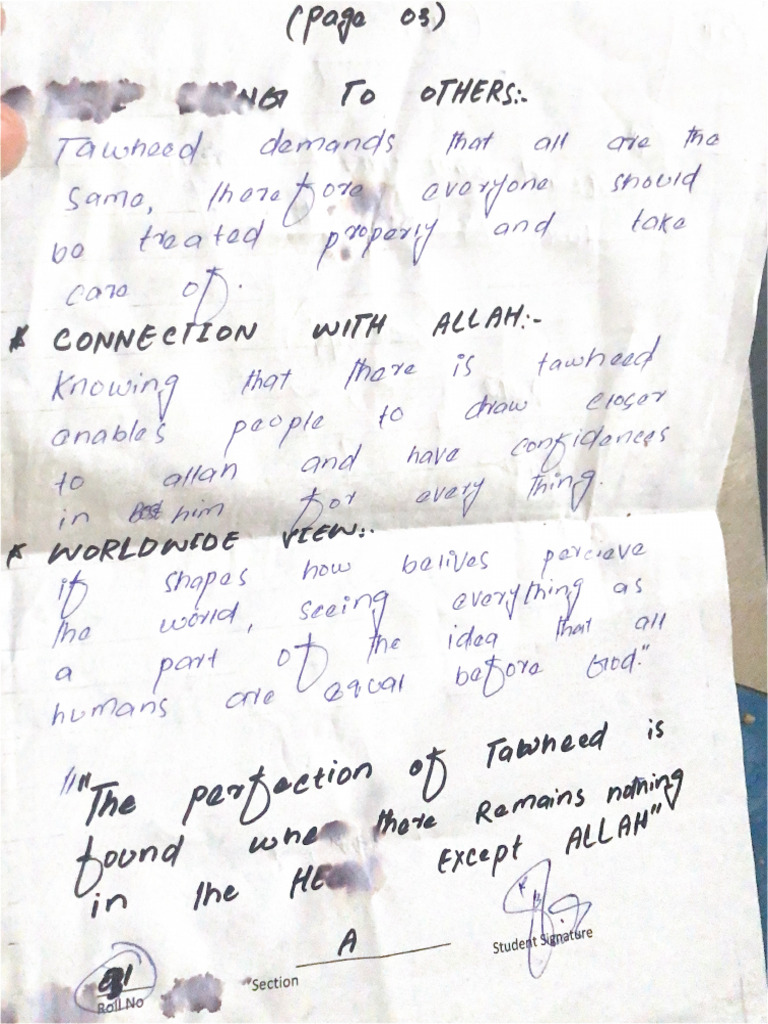 (Page 03)
TO OTHERS:-
Tawheed demands that all are the
same, therefore everyone should
be treated properly and take
care of.
* CONNECTION WITH ALLAH:-
Knowing that there is tawheed
enables people to draw closer
to allah and have confidences
in him for every thing.
* WORLDWIDE VIEW:-
if shapes how belives percieve
the world, seeing everything as
a part of the idea that all
humans are equal before God."
""The perfection of Tawheed is
found when there Remains nothing
in the Except ALLAH"
A
Roll No Section Student Signature